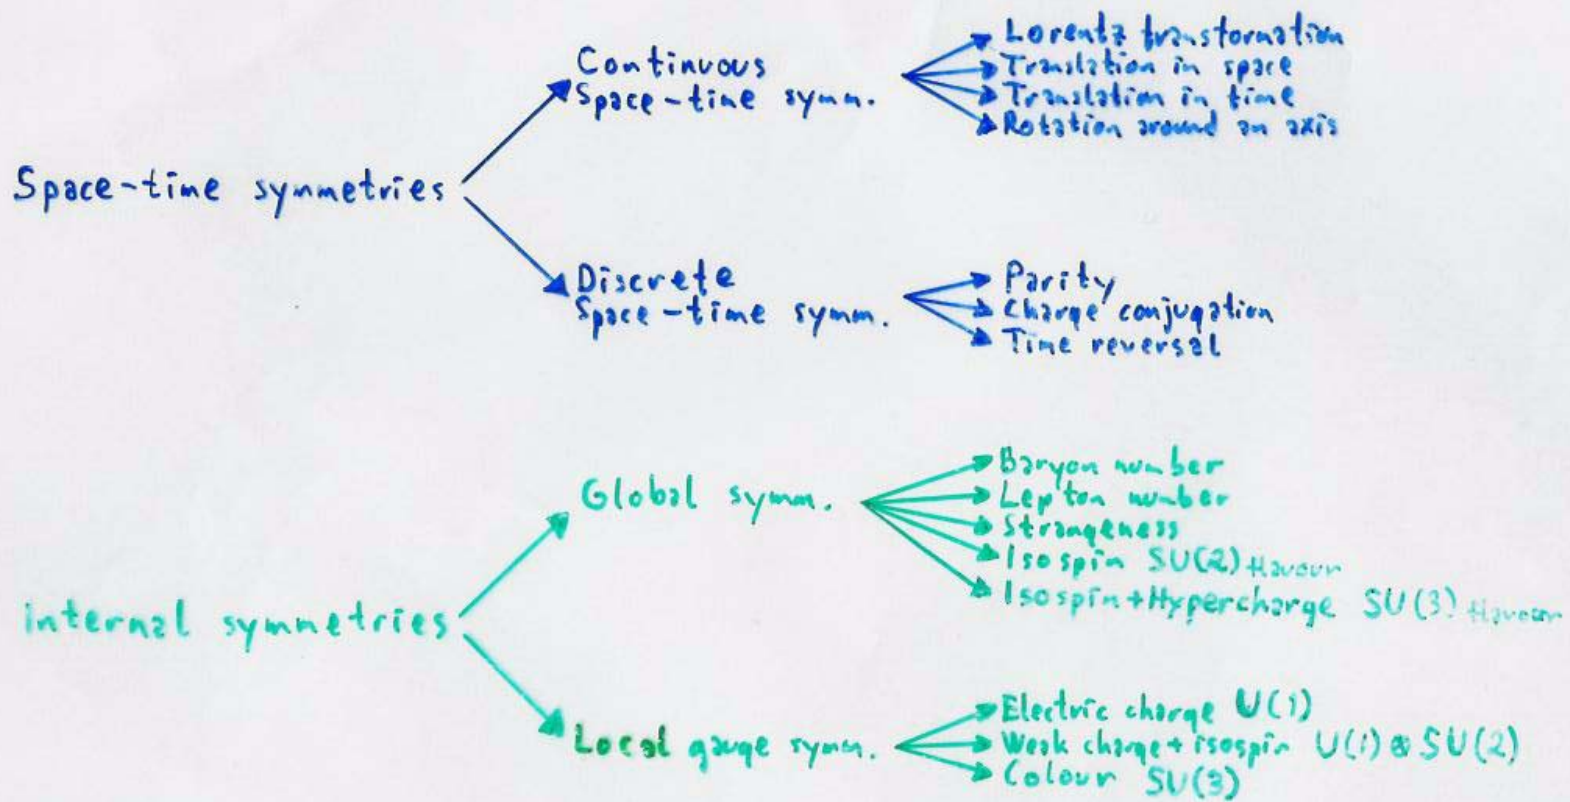 Space-time symmetries
Continuous
Space-time symm.
Lorentz transformation
Translation in space
Translation in time
Rotation around an axis
Discrete
Space-time symm.
Parity
Charge conjugation
Time reversal
internal symmetries
Global symm.
Baryon number
Lepton number
Strangeness
Isospin SU(2) flavour
Isospin+Hypercharge SU(3) flavour
Local gauge symm.
Electric charge U(1)
Weak charge+isospin U(1)⊗SU(2)
Colour SU(3)